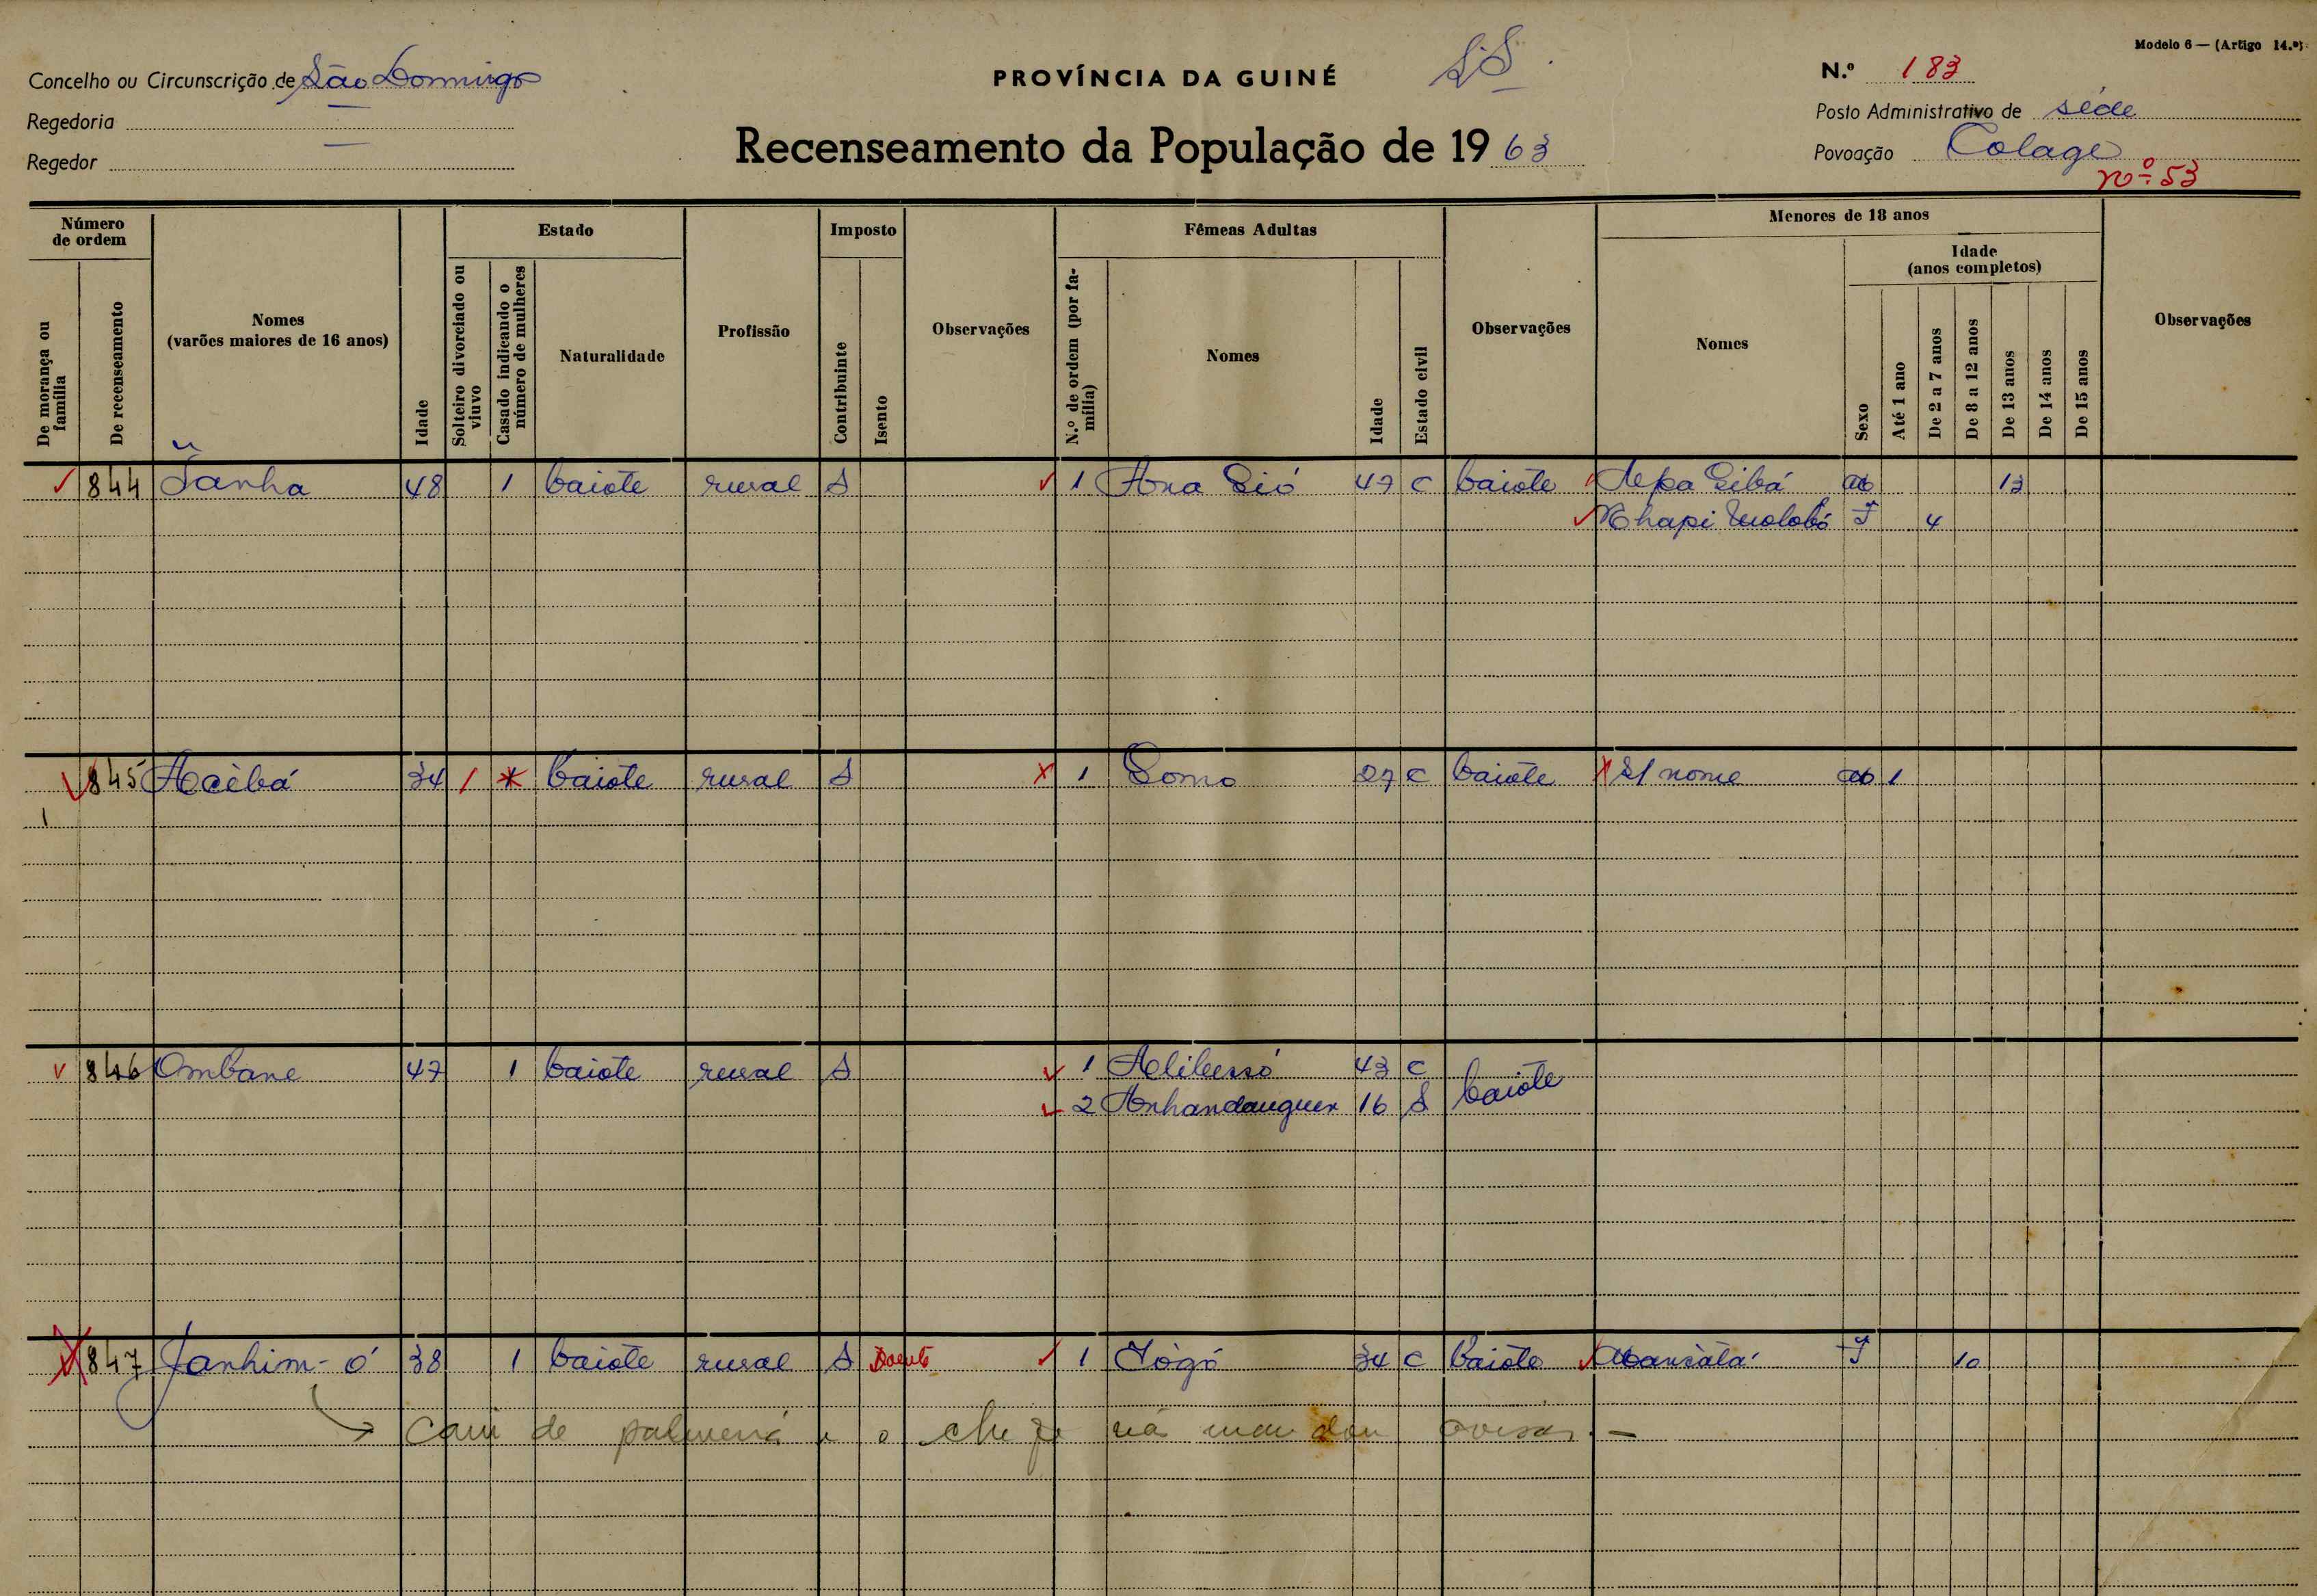 Modelo 6 — (Artigo 14.º)
Concelho ou Circunscrição de São Domingos
PROVÍNCIA DA GUINÉ
N.º 183
Regedoria —
Posto Administrativo de séde
Regedor —
Recenseamento da População de 1963
Povoação Colage
nº 53
Número de ordem
De morança ou família
De recenseamento
Nomes
(varões maiores de 16 anos)
Idade
Estado
Solteiro divorciado ou viuvo
Casado indicando o número de mulheres
Naturalidade
Profissão
Imposto
Contribuinte
Isento
Observações
Fêmeas Adultas
N.º de ordem (por família)
Nomes
Idade
Estado civil
Observações
Menores de 18 anos
Nomes
Sexo
Idade
(anos completos)
Até 1 ano
De 2 a 7 anos
De 8 a 12 anos
De 13 anos
De 14 anos
De 15 anos
Observações
844 Sanha 48 1 baiote rural S 1 Ana Sió 47 C baiote 13
F 4
845 Acèbá 34 baiote rural S 1 Somo 27 C baiote S/ nome 1
846 Ombane 47 1 baiote rural S 1 Alibussó 43 C
2 16 S baiote
847 Janhim-ó 38 1 baiote rural S Doente 1 Jògó 34 C baiote F 10
de palmeira e o chefe